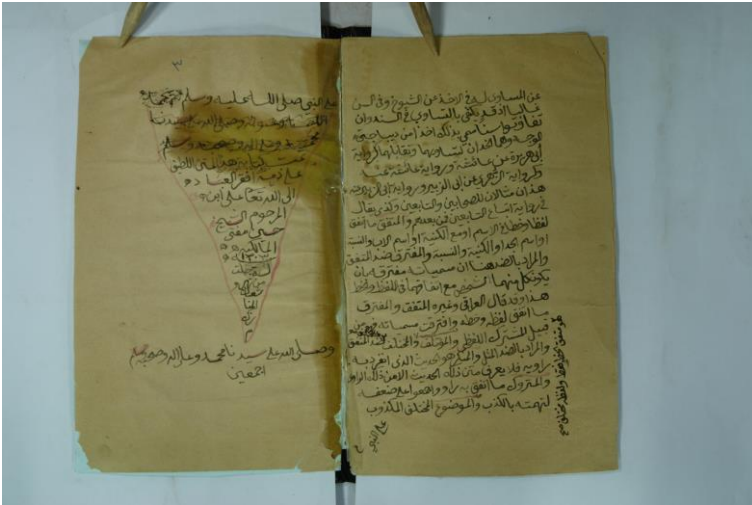 عن المساوي له في الاخذ عن الشيوخ وفي السن
غالبا اذ قد يكتفى بالتساوي في السند وان
تفاوتوا سنا سمي بذلك اخذا من ديباجتي
الوجه وهما خدان لتساويهما وتقابلهما كرواية
أبي هريرة عن عائشة ورواية عائشة عنه
وكرواية الزهري عن ابي الزبير ورواية ابي الزبير عنه
هذان مثالان للصحابيين والتابعيين وكذي يقال
في رواية اتباع التابعين فمن بعدهم والمتفق ما اتفق
لفظا وخطا في الاسم او مع الكنية او اسم الاب والنسبة
او اسم الجد او الكنية والنسبة والمفترق ضد المتفق
والمراد بالضد هنا ان مسمياته مفترقة بان
يكون كل منهما لشخص مع اتفاقهما في اللفظ والخط
هذا وقد قال العراقي وغيره المتفق والمفترق
ما اتفق لفظه وخطه وافترقت مسمياته
قبيل المشترك اللفظي والمؤتلف والمختلف ضد المتفق
والمراد بالضد المثل والمنكر هو الحديث الذي انفرد به
راويه فلا يعرف متن ذلك الحديث الا من ذلك الراوي
والمتروك ما انفرد به راو واجمعوا على ضعفه
لتهمته بالكذب والموضوع المختلق المكذوب
على النبي
هو متفق خطا فقط ولفظه مختلف صح
٣
على النبي صلى الله عليه وسلم
وصلى الله على سيدنا
محمد وعلى اله وصحبه وسلم
تمت كتابة هذا المتن اللطيف
على ذمة افقر العباد
الى الله تعالى على ابن
المرحوم الشيخ
حسن مفتي
المالكية
١٣٠٢
وصلى الله على سيدنا محمد وعلى اله وصحبه وسلم
اجمعين